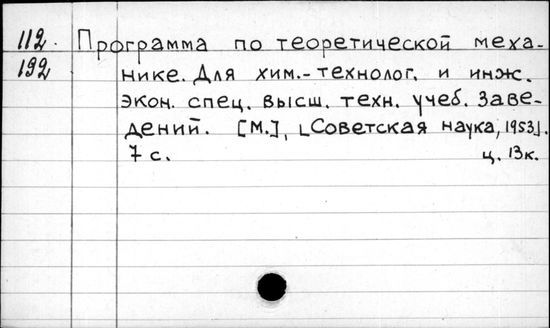 112. Программа по теоретической меха-
192 нике. Для хим.-технолог. и инж.
экон. спец. высш. техн. учеб. заве-
дений. [М.], [Советская наука, 1953].
7 с. ц. 13к.